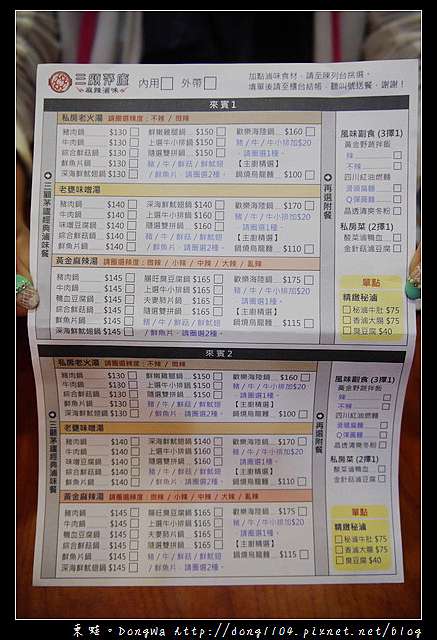 三顧茅廬
麻辣滷味
內用 外帶
加點滷味食材，請至陳列台挑選，
填單後請至櫃台結帳，聽叫號送餐，謝謝！
來賓1
三顧茅廬經典滷味餐
私房老火湯 請圈選辣度：不辣 / 微辣
豬肉鍋 $130
牛肉鍋 $130
綜合鮮菇鍋 $130
鮮魚片鍋 $130
深海鮮魷翅鍋 $130
鮮嫩雞腿鍋 $150
上選牛小排鍋 $150
隨選雙拼鍋 $150
豬 / 牛 / 鮮菇 / 鮮魷翅
/ 鮮魚片，請圈選2種。
歡樂海陸鍋 $160
豬 / 牛 / 牛小排加$20
請圈選1種。
【主廚精選】
鍋燒烏龍麵 $100
老甕味噌湯
豬肉鍋 $140
牛肉鍋 $140
味噌豆腐鍋 $140
綜合鮮菇鍋 $140
鮮魚片鍋 $140
深海鮮魷鍋 $140
上選牛小排鍋 $160
隨選雙拼鍋 $160
豬 / 牛 / 鮮菇 / 鮮魷翅
/ 鮮魚片，請圈選2種。
歡樂海陸鍋 $170
豬 / 牛 / 牛小排加$20
請圈選1種。
【主廚精選】
鍋燒烏龍麵 $110
黃金麻辣湯 請圈選辣度：微辣 / 小辣 / 中辣 / 大辣 / 亂辣
豬肉鍋 $145
牛肉鍋 $145
鴨血豆腐鍋 $145
綜合鮮菇鍋 $145
鮮魚片鍋 $145
深海鮮魷翅鍋 $145
腸旺臭豆腐鍋 $165
上選牛小排鍋 $165
夫妻肺片鍋 $165
隨選雙拼鍋 $165
豬 / 牛 / 鮮菇 / 鮮魷翅
/ 鮮魚片，請圈選2種。
歡樂海陸鍋 $175
豬 / 牛 / 牛小排加$20
請圈選1種。
【主廚精選】
鍋燒烏龍麵 $115
再選附餐
風味副食 (3擇1)
黃金野蔬拌飯
辣
不辣
四川紅油燃麵
滑順扁麵
Q彈圓麵
晶透清爽冬粉
私房菜 (2擇1)
酸菜滷鴨血
金針菇滷豆腐
單點
精緻秘滷
秘滷牛肚 $75
香滷大腸 $75
臭豆腐 $40
來賓2
三顧茅廬經典滷味餐
私房老火湯 請圈選辣度：不辣 / 微辣
豬肉鍋 $130
牛肉鍋 $130
綜合鮮菇鍋 $130
鮮魚片鍋 $130
深海鮮魷翅鍋 $130
鮮嫩雞腿鍋 $150
上選牛小排鍋 $150
隨選雙拼鍋 $150
豬 / 牛 / 鮮菇 / 鮮魷翅
/ 鮮魚片，請圈選2種。
歡樂海陸鍋 $160
豬 / 牛 / 牛小排加$20
請圈選1種。
【主廚精選】
鍋燒烏龍麵 $100
老甕味噌湯
豬肉鍋 $140
牛肉鍋 $140
味噌豆腐鍋 $140
綜合鮮菇鍋 $140
鮮魚片鍋 $140
深海鮮魷翅鍋 $140
上選牛小排鍋 $160
隨選雙拼鍋 $160
豬 / 牛 / 鮮菇 / 鮮魷翅
/ 鮮魚片，請圈選2種。
歡樂海陸鍋 $170
豬 / 牛 / 牛小排加$20
請圈選1種。
【主廚精選】
鍋燒烏龍麵 $110
黃金麻辣湯 請圈選辣度：微辣 / 小辣 / 中辣 / 大辣 / 亂辣
豬肉鍋 $145
牛肉鍋 $145
鴨血豆腐鍋 $145
綜合鮮菇鍋 $145
鮮魚片鍋 $145
深海鮮魷翅鍋 $145
腸旺臭豆腐鍋 $165
上選牛小排鍋 $165
夫妻肺片鍋 $165
隨選雙拼鍋 $165
豬 / 牛 / 鮮菇 / 鮮魷翅
/ 鮮魚片，請圈選2種。
歡樂海陸鍋 $175
豬 / 牛 / 牛小排加$20
請圈選1種。
【主廚精選】
鍋燒烏龍麵 $115
再選附餐
風味副食 (3擇1)
黃金野蔬拌飯
辣
不辣
四川紅油燃麵
滑順扁麵
Q彈圓麵
晶透清爽冬粉
私房菜 (2擇1)
酸菜滷鴨血
金針菇滷豆腐
單點
精緻秘滷
秘滷牛肚 $75
香滷大腸 $75
臭豆腐 $40
東蛙。DongWa http://dong1104.pixnet.net/blog